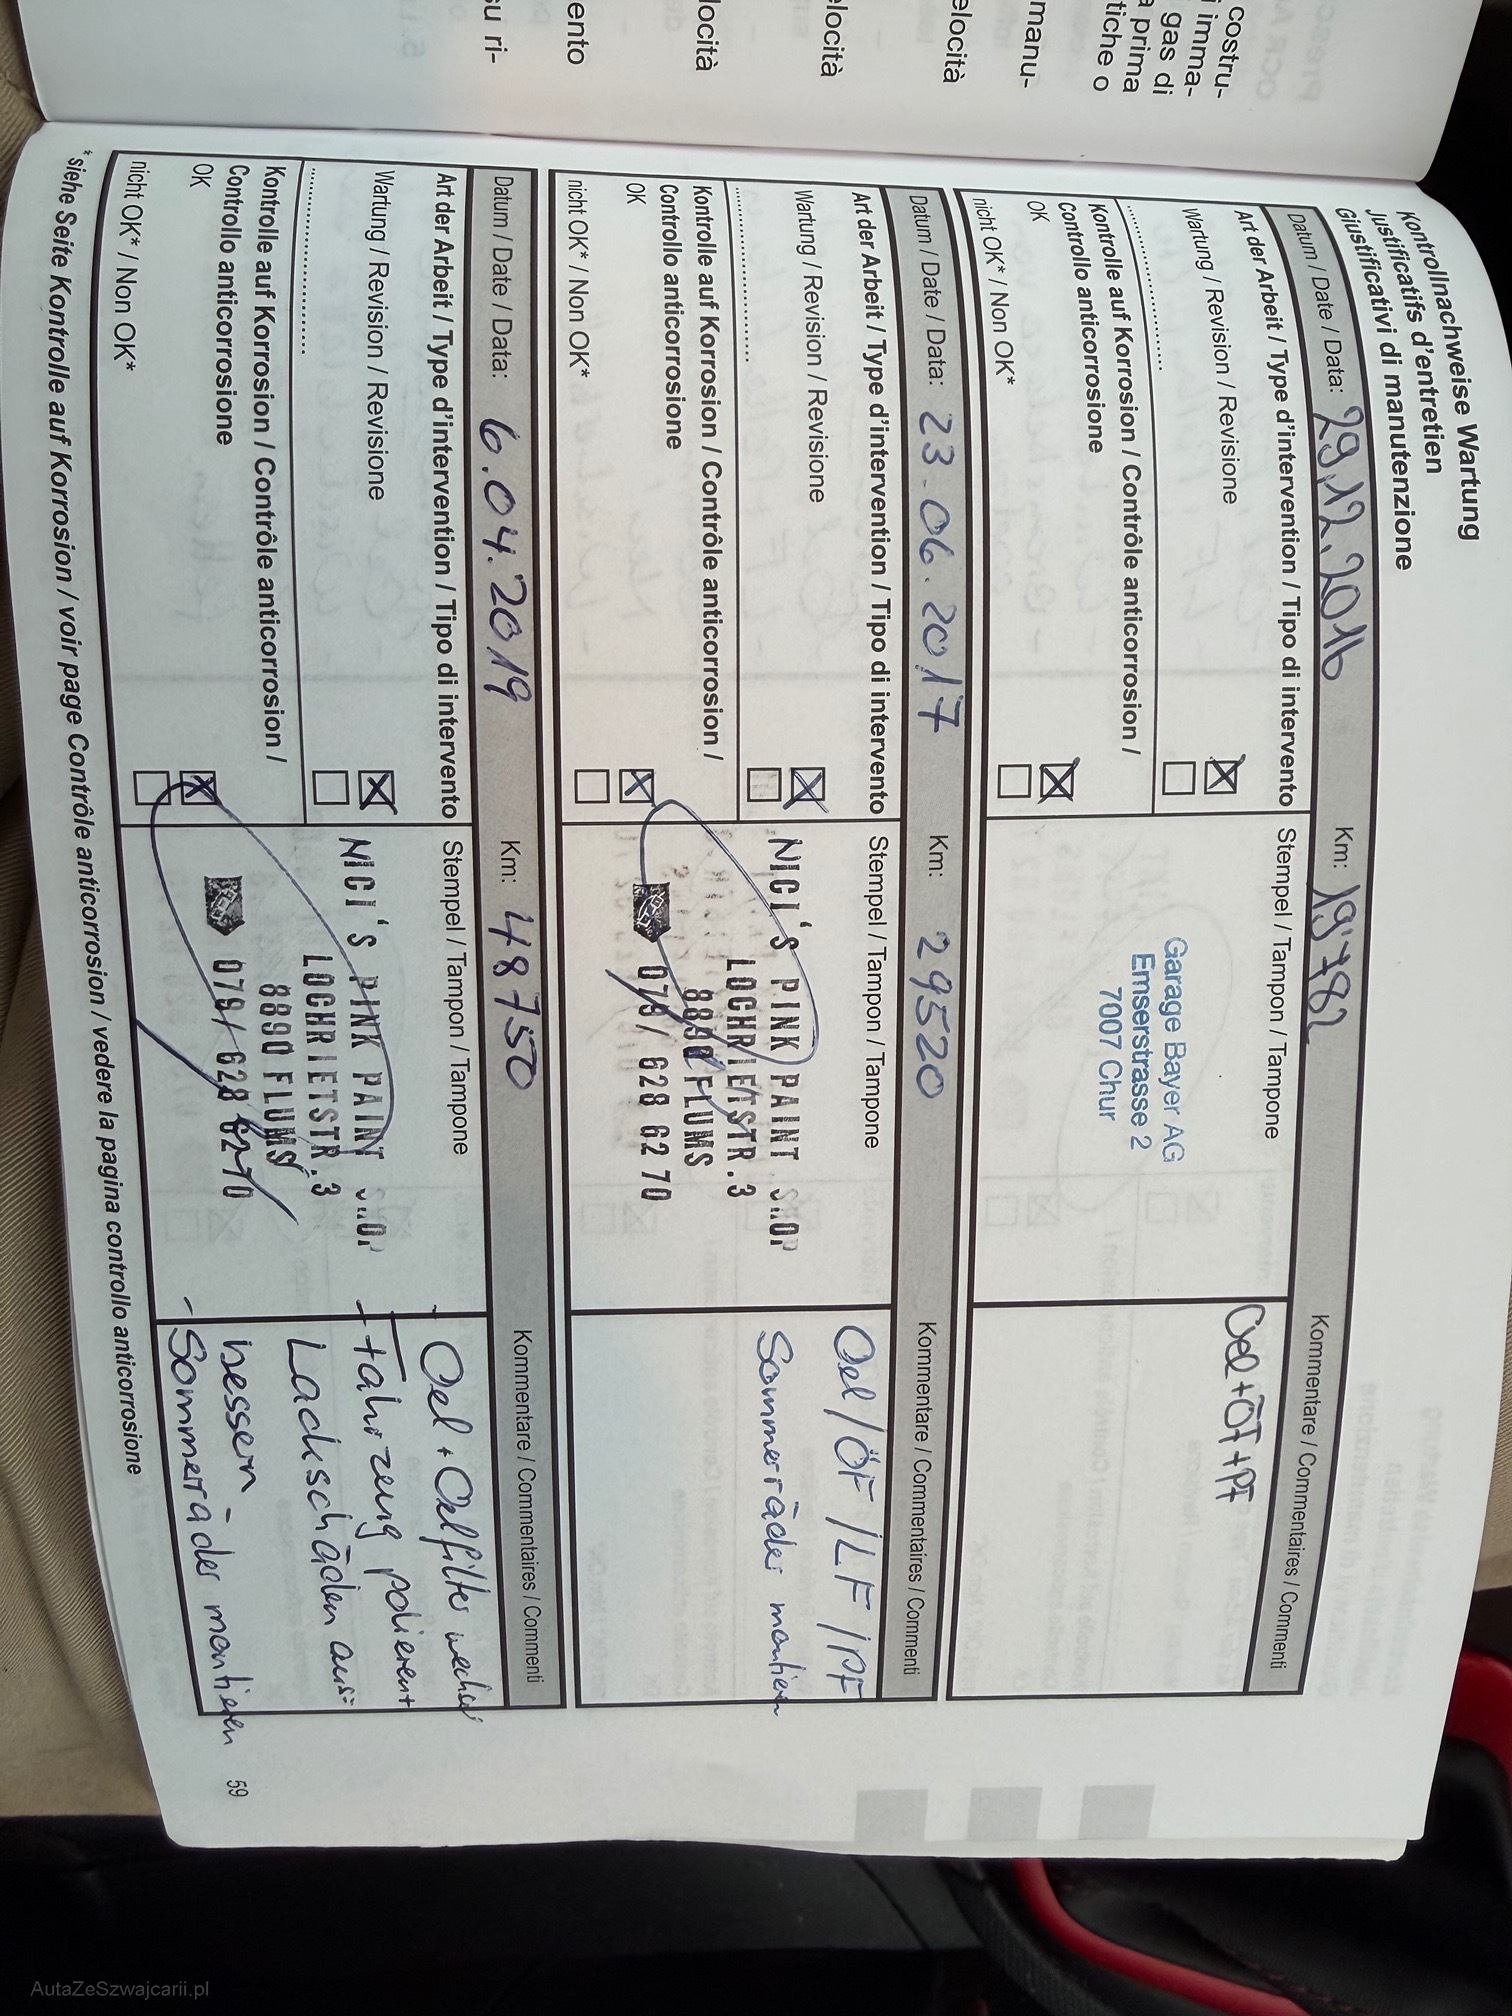 costru-
i imma-
gas di
a prima
tiche o
manu-
elocità
elocità
locità
ento
su ri-
Kontrollnachweise Wartung
Justificatifs d'entretien
Giustificativi di manutenzione
Datum / Date / Data: 29.12.2016 Km: 19'782 Kommentare / Commentaires / Commenti
Art der Arbeit / Type d'intervention / Tipo di intervento
Stempel / Tampon / Tampone
Wartung / Revision / Revisione
Kontrolle auf Korrosion / Contrôle anticorrosion /
Controllo anticorrosione
OK
nicht OK* / Non OK*
Garage Bayer AG
Emserstrasse 2
7007 Chur
Oel+ÖF+PF
Datum / Date / Data: 23.06.2017 Km: 29520 Kommentare / Commentaires / Commenti
Art der Arbeit / Type d'intervention / Tipo di intervento
Stempel / Tampon / Tampone
Wartung / Revision / Revisione
Kontrolle auf Korrosion / Contrôle anticorrosion /
Controllo anticorrosione
OK
nicht OK* / Non OK*
NICI'S PINK PAINT SHOP
LOCHRIETSTR.3
8890 FLUMS
079/ 628 62 70
Oel/ÖF/LF/PF
Sommerräder montieren
Datum / Date / Data: 6.04.2019 Km: 48750 Kommentare / Commentaires / Commenti
Art der Arbeit / Type d'intervention / Tipo di intervento
Stempel / Tampon / Tampone
Wartung / Revision / Revisione
Kontrolle auf Korrosion / Contrôle anticorrosion /
Controllo anticorrosione
OK
nicht OK* / Non OK*
NICI'S PINK PAINT SHOP
LOCHRIETSTR.3
8890 FLUMS
079/ 628 62 70
- Oel + Oelfilter wechsel
- Fahrzeug polieren+
Lackschäden aus=
bessern
- Sommerräder montieren
* siehe Seite Kontrolle auf Korrosion / voir page Contrôle anticorrosion / vedere la pagina controllo anticorrosione
59
AutaZeSzwajcarii.pl